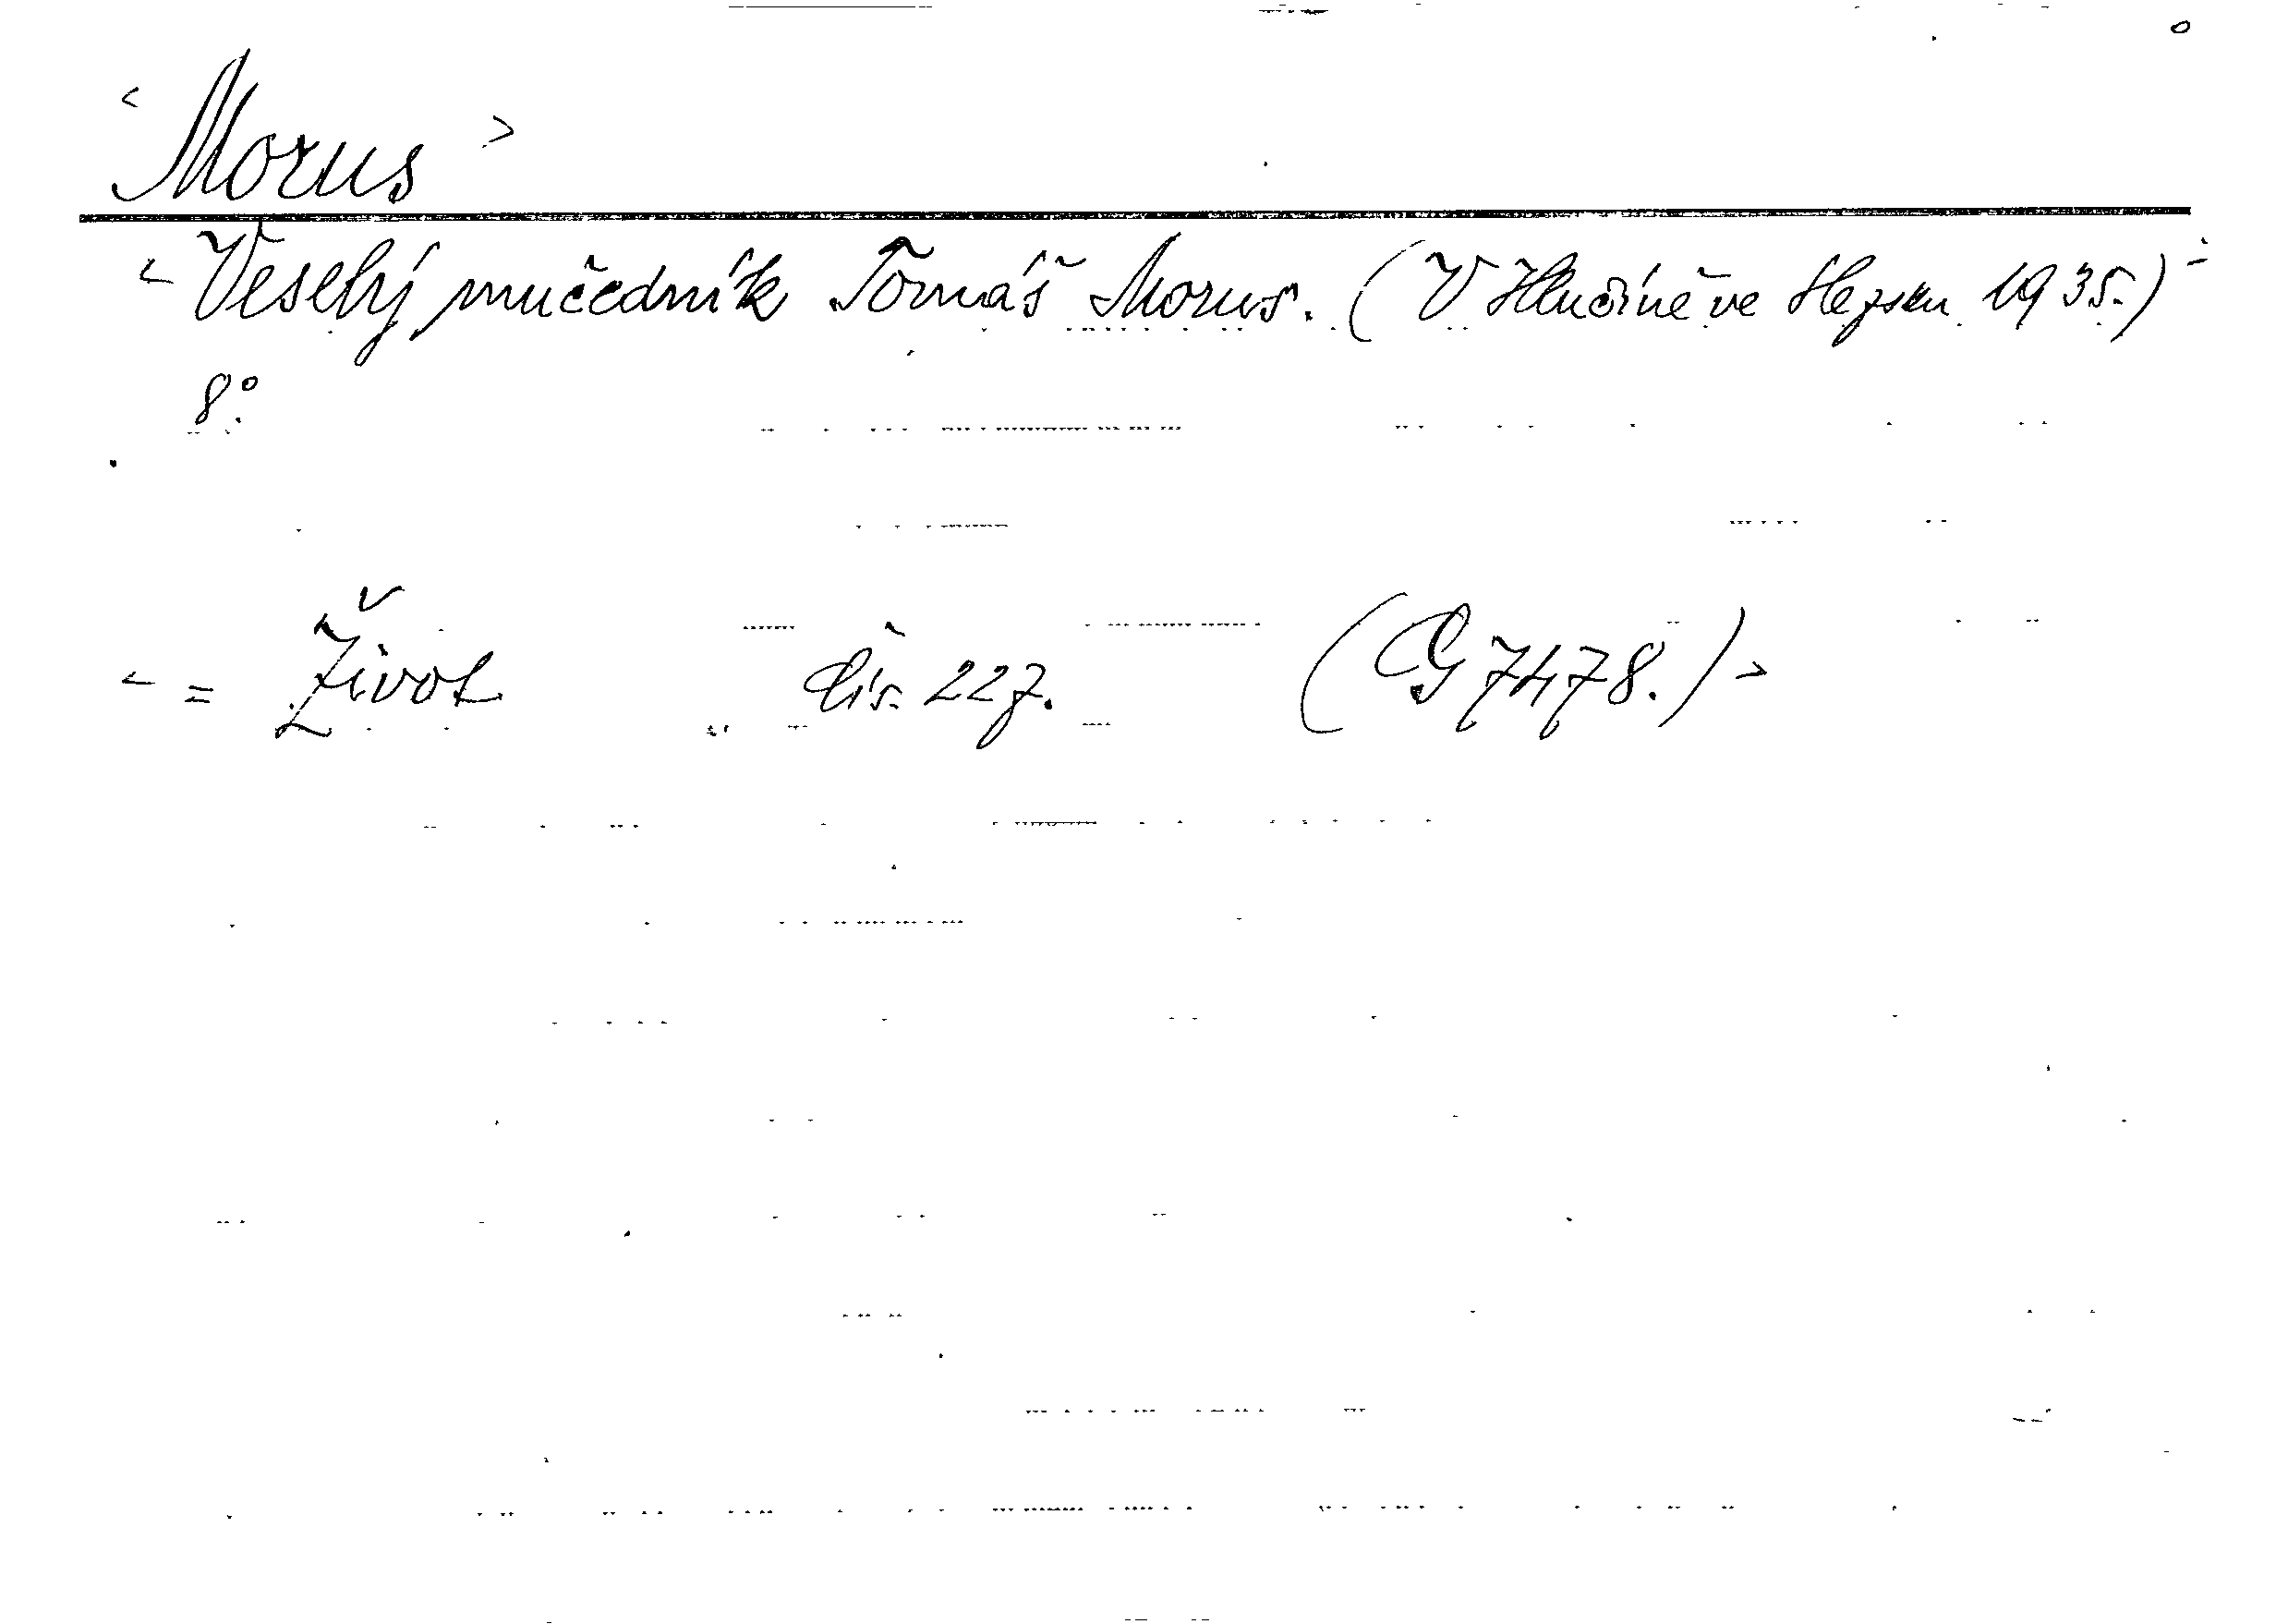 < Morus >
< Veselý mučedník Tomáš Morus. (V Hlučíně ve Slezsku 1935.) >
8°.
< = Život čís. 227. (G 7478.) >